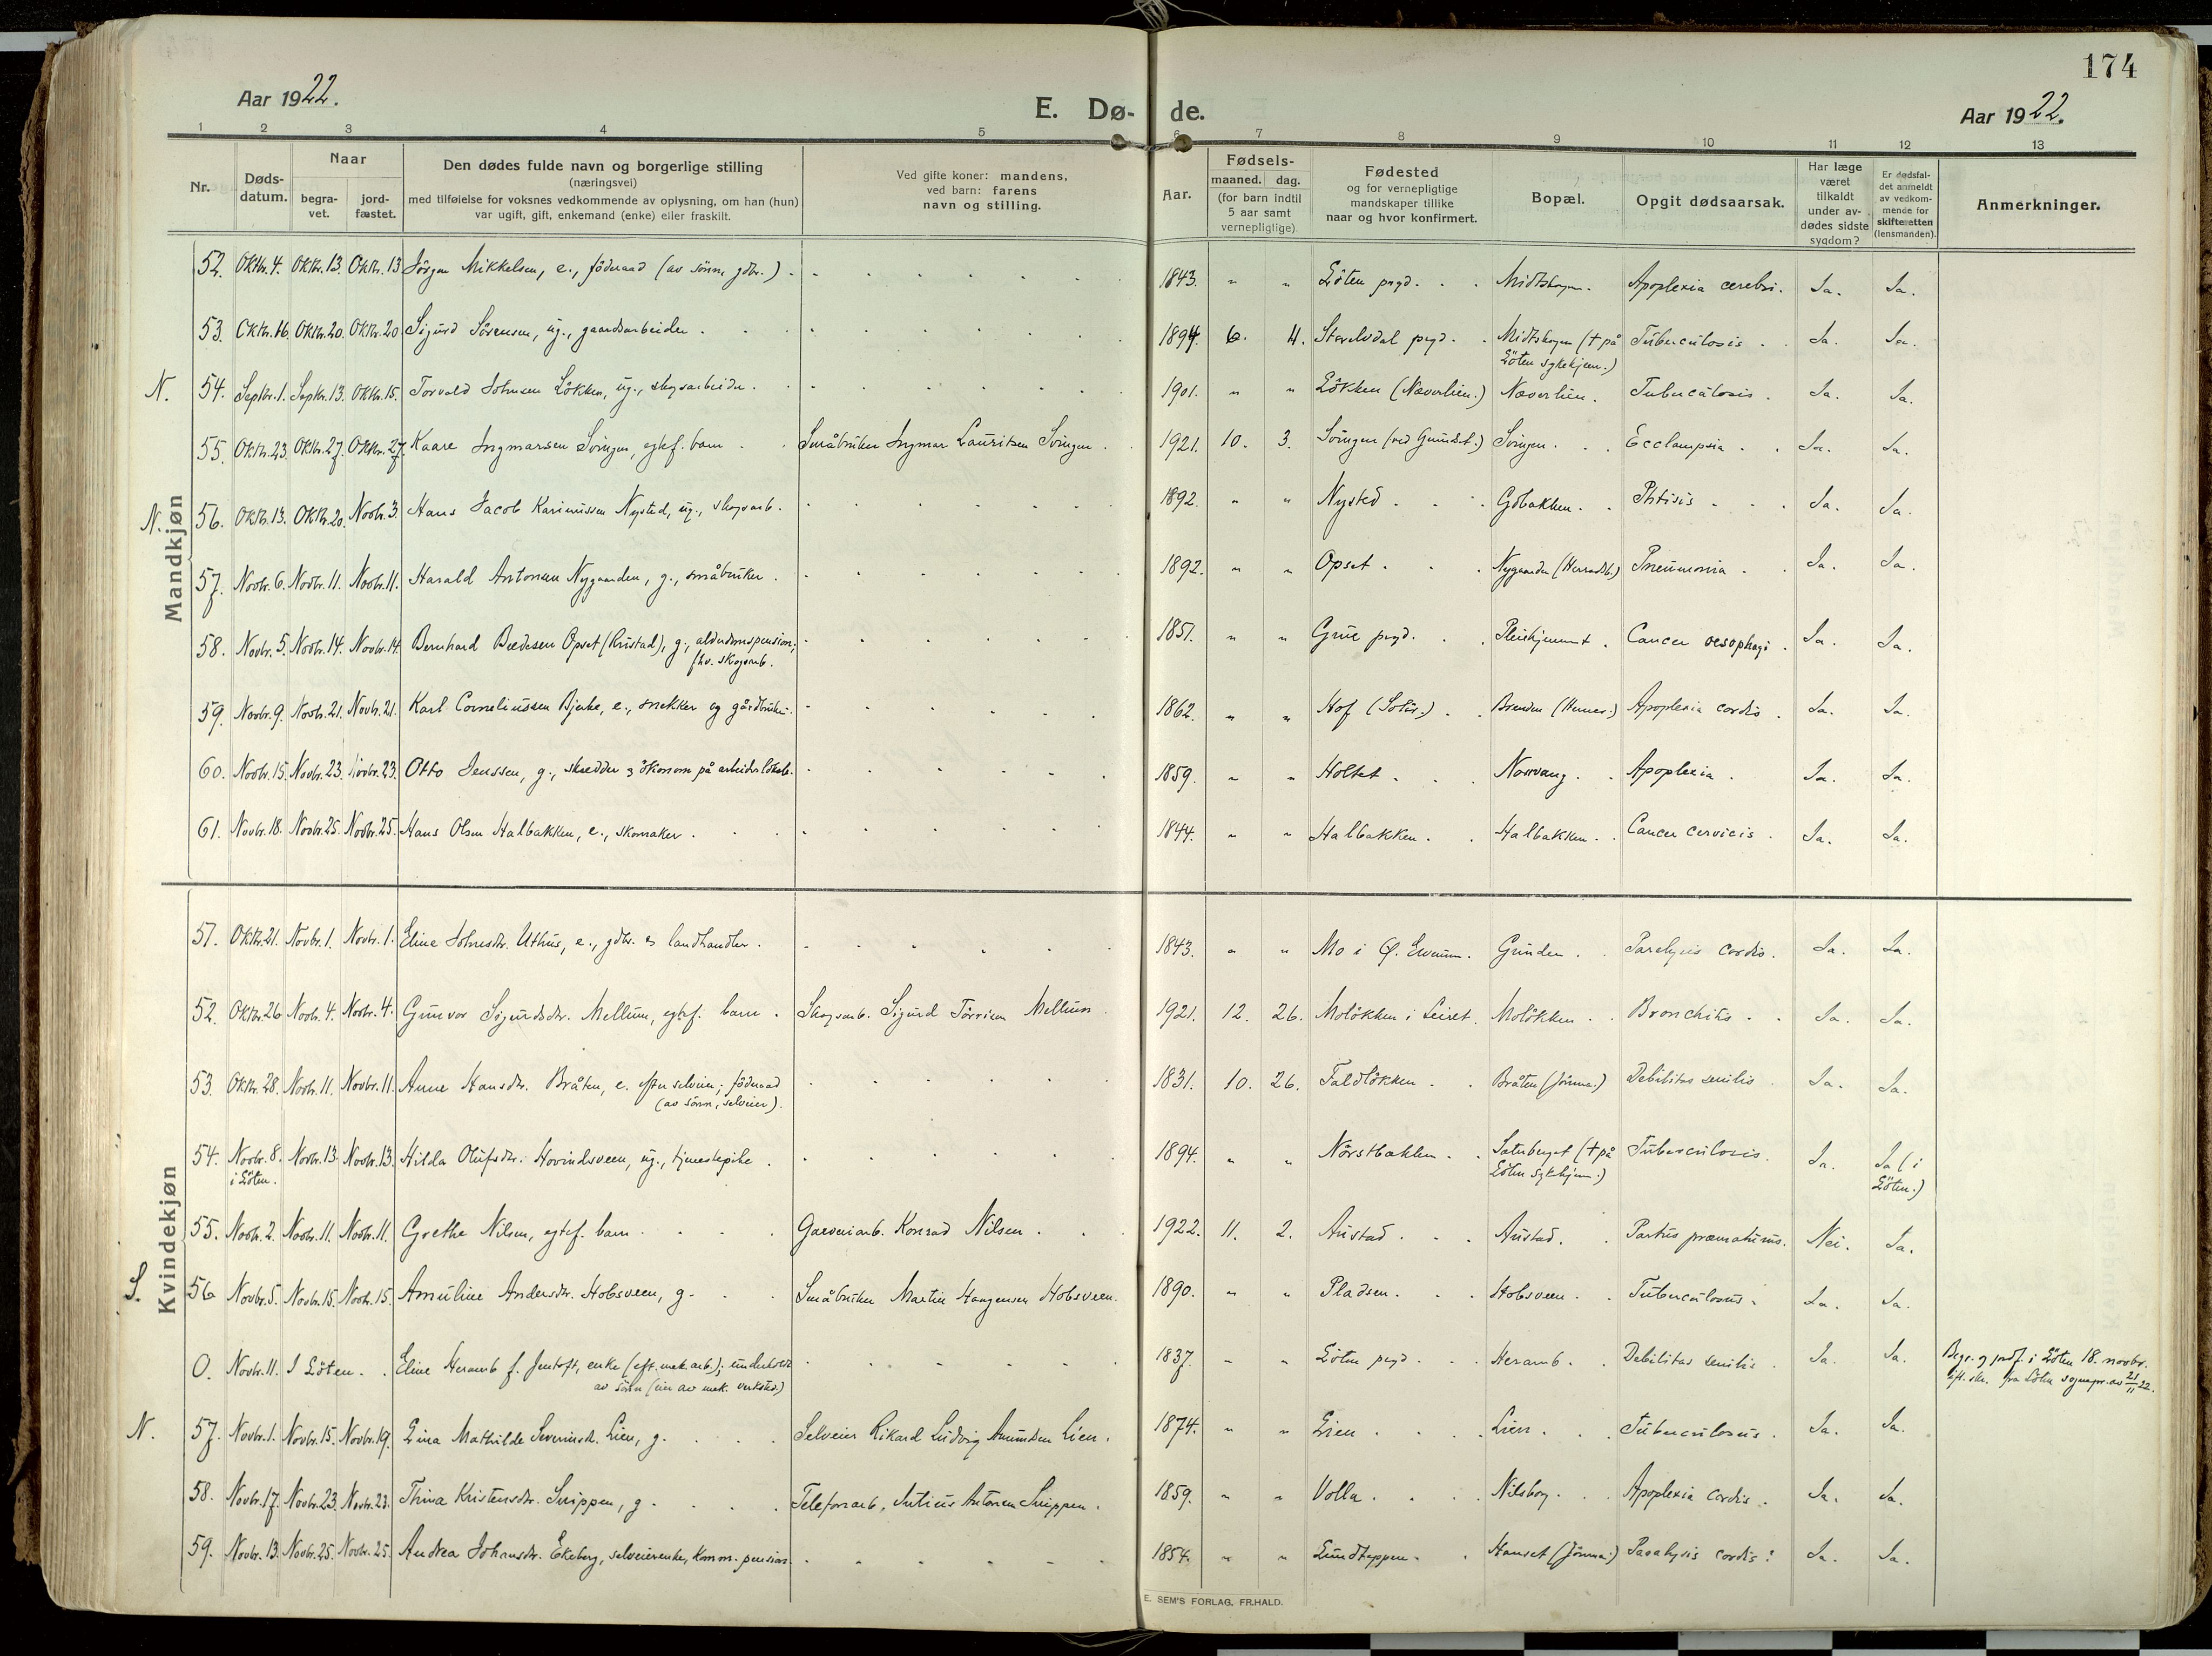 174
Aar 1922.
E. Dø-
de.
Aar 1922.
1 2 3 4 5 6 7 8 9 10 11 12 13
Nr.
Døds-
datum.
Naar
begra-
vet.
jord-
fæstet.
Den dødes fulde navn og borgerlige stilling
(næringsvei)
med tilføielse for voksnes vedkommende av oplysning, om han (hun)
var ugift, gift, enkemand (enke) eller fraskilt.
Ved gifte koner: mandens,
ved barn: farens
navn og stilling.
Aar.
Fødsels-
maaned. dag.
(for barn indtil
5 aar samt
vernepligtige)
Fødested
og for vernepligtige
mandskaper tillike
naar og hvor konfirmert.
Bopæl.
Opgit dødsaarsak.
Har læge
været
tilkaldt
under av-
dødes sidste
sygdom?
Er dødsfal-
det anmeldt
av vedkom-
mende for
skifteretten
(lensmanden).
Anmerkninger.
Mandkjøn
52. Oktbr. 4. Oktbr. 13. Oktbr. 13 Jörgen Mikkelsen, e., föderaad (av sönn, gdbr.) 1843. " " Löten prgd. Midtskogen. Apoplexia cerebri. Ja. Ja.
53. Oktbr. 16. Oktbr. 20. Oktbr. 20 Sigurd Sörensen, ug., gaardsarbeider. 1894. 6. 11. Storelvdal prgd. Midtskogen († på Tuberculosis Ja. Ja.
Löten sykehjem.)
N. 54. Septbr. 1. Septbr. 13. Oktbr. 15. Torvald Johnsen Lökken, ug., skogsarbeider. 1901. " " Lökken (Næverlien.) Næverlien. Tuberculosis. Ja. Ja.
55. Oktbr. 23. Oktbr. 27. Oktbr. 27. Kaare Ingmarsen Svingen, egtef. barn Småbruker Ingmar Lauritsen Svingen. 1921. 10. 3. Svingen (ved Grundset.) Svingen. Ecclampsia. Ja. Ja.
N. 56. Oktbr. 13. Oktbr. 20. Novbr. 3. Hans Jacob Karinussen Nysted, ug., skogsarb. 1892. " " Nysted Gobakken. Phtisis Ja. Ja.
57. Novbr. 6. Novbr. 11. Novbr. 11. Harald Antonsen Nygaarden, g., småbruker. 1892. " " Opset Nygaarden (Herradsb.) Pneumonia Ja. Ja.
58. Novbr. 5. Novbr. 14. Novbr. 14. Bernhard Opset (Rustad), g., alderdomspension; 1851. " " Grue prgd. Pleiehjemmet. Cancer oesophagi. Ja. Ja.
fhv. skogsarb.
59. Novbr. 9. Novbr. 21. Novbr. 21. Karl Corneliussen Bjerke, e., snekker og gårdbruker. 1862. " " Hof (Solör.) Brenden (Herner.) Apoplexia cordis. Ja. Ja.
60. Novbr. 15. Novbr. 23. Novbr. 23. Otto Jenssen, g., skredder og ökonom på arbeiderlokale. 1859. " " Holtet Norvang. Apoplexia. Ja. Ja.
61. Novbr. 18. Novbr. 25. Novbr. 25. Hans Olsen Halbakken, e., skomaker. 1844. " " Halbakken. Halbakken. Cancer cervicis. Ja. Ja.
Kvindekjøn
51. Oktbr. 21. Novbr. 1. Novbr. 1. Eline Johnsdtr. Uthus, e., gdbr. og landhandler. 1843. " " Mo i Ø. Elverum. Grinden. Paralysis cordis. Ja. Ja.
52. Oktbr. 26 Novbr. 4. Novbr. 4. Gunvor Sigurdsdtr. Mellum, egtef. barn. Skogsarb. Sigurd Mellum. 1921. 12. 26. Molökken i Leiret. Molökken Bronchitis Ja. Ja.
53. Oktbr. 28. Novbr. 11. Novbr. 11. Anne Hansdtr. Bråten, e. efter selveier; föderaad 1831. 10. 26. Faldlökken Bråten (Jömna.) Debilitas senilis Ja. Ja.
(av sönn, selveier).
54. Novbr. 8. Novbr. 13. Novbr. 13. Hilda Olufsdtr. Hovindsveen, ug., tjenestepike. 1894. " " Nörstbakken Sæterberget († på Tuberculosis. Ja. Ja (i
i Löten. Löten sykehjem.) Löten.)
55. Novbr. 2. Novbr. 11. Novbr. 11. Grethe Nilsen, egtef. barn Garveriarb. Konrad Nilsen. 1922. 11. 2. Austad. Austad. Partus præmaturus. Nei. Ja.
S. 56 Novbr. 5. Novbr. 15. Novbr. 15. Anuline Andersdtr. Hobsveen, g. Småbruker Martin Haagensen Hobsveen. 1890. " " Pladsen. Hobsveen. Tuberculosis. Ja. Ja.
0. Novbr. 11. I Löten. Eline Heramb f. Jentoft, enke (eft. mek. arb.); underholdt 1837. " " Löten prgd. Heramb. Debilitas senilis. Ja. Ja. Begr. og jordf. i Löten 18. novbr.
av sönn (eier av mek. verksted.) ifl. skr. fra Löten sognepr. av 21/11 22.
N. 57. Novbr. 1. Novbr. 15. Novbr. 19. Lina Mathilde Severinsdtr. Lien, g. Selveier Rikard Ludvig Amundsen Lien. 1874. " " Lien Lien. Tuberculosis. Ja. Ja.
58. Novbr. 17. Novbr. 23. Novbr. 23. Thina Kristensdtr. Svippen, g. Telefonarb. Julius Antonsen Svippen. 1859. " " Volla. Nilsborg. Apoplexia cordis. Ja. Ja.
59. Novbr. 13. Novbr. 25. Novbr. 25. Andrea Johansdtr. Ekeberg, selveierenke, komm. pension. 1854. " " Lundteppen. Hanset (Jömna.) Paralysis cordis. Ja. Ja.
E. SEM'S FORLAG, FR.HALD.